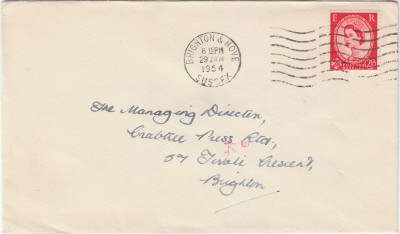 BRIGHTON & HOVE
6 15 PM
29 JAN
1954
SUSSEX
E R
2½
The Managing Director,
Crabtree Press Ltd,
57 Tivoli Crescent,
Brighton.